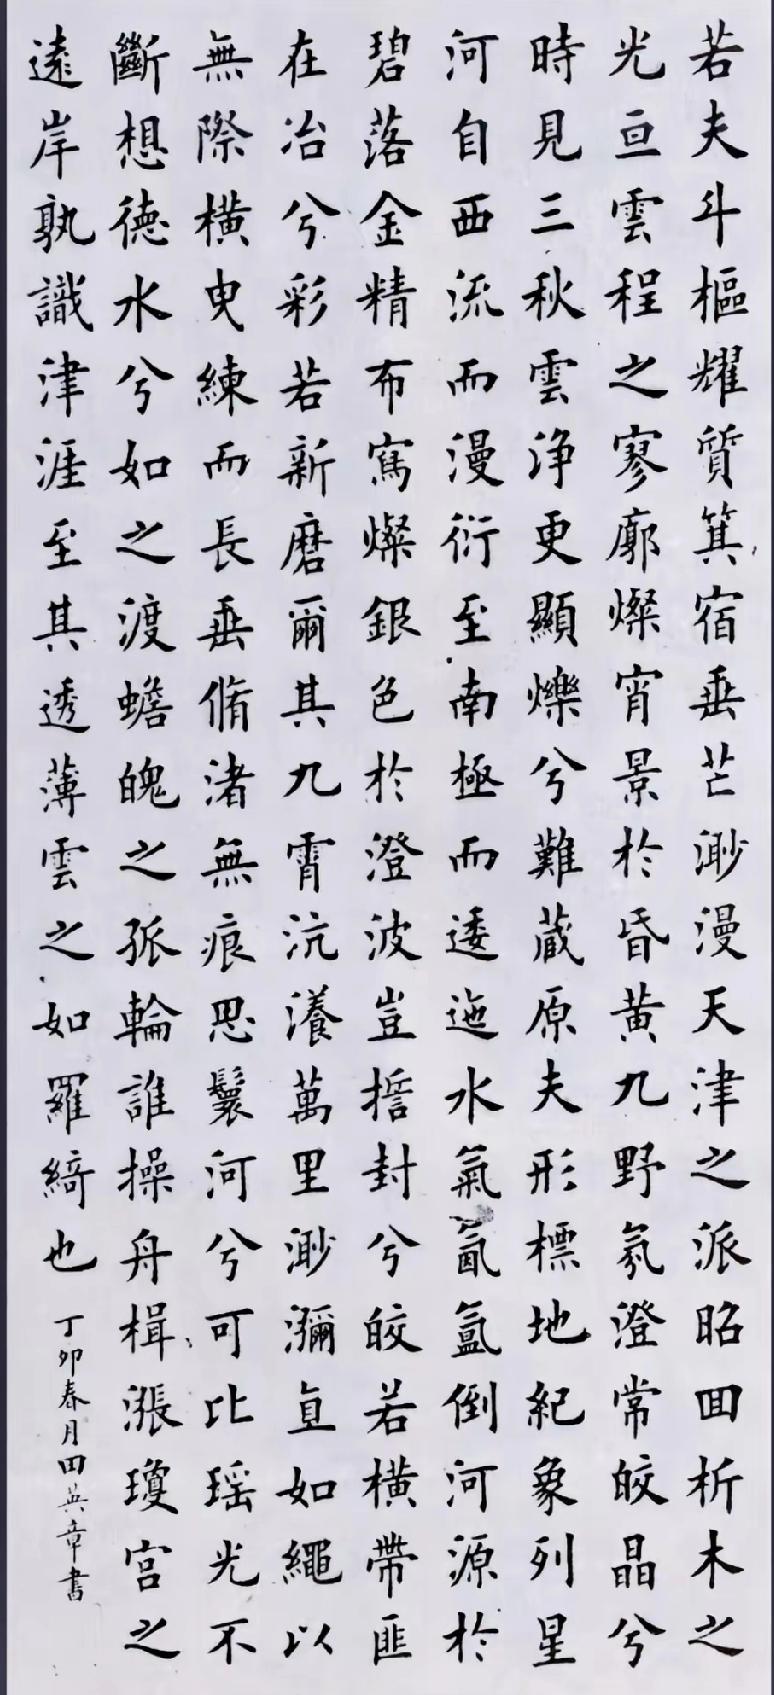 若夫斗樞耀質箕宿垂芒渺漫天津之派昭回析木之
光亘雲程之寥廓燦宵景於昏黄九野氛澄常皎晶兮
時見三秋雲浄更顯爍兮難蔵原夫形標地紀象列星
河自西流而漫衍至南極而逶迤水氣氤氳倒河源於
碧落金精布寫燦銀色於澄波豈㨗封兮皎若横帶匪
在冶兮彩若新磨爾其九霄沆瀁萬里渺瀰直如繩以
無際横曳練而長垂脩渚無痕思鬟河兮可比瑶光不
斷想德水兮如之渡蟾魄之孤輪誰操舟楫漲瓊宫之
遠岸孰識津涯至其透薄雲之如羅綺也
丁卯春月田英章書